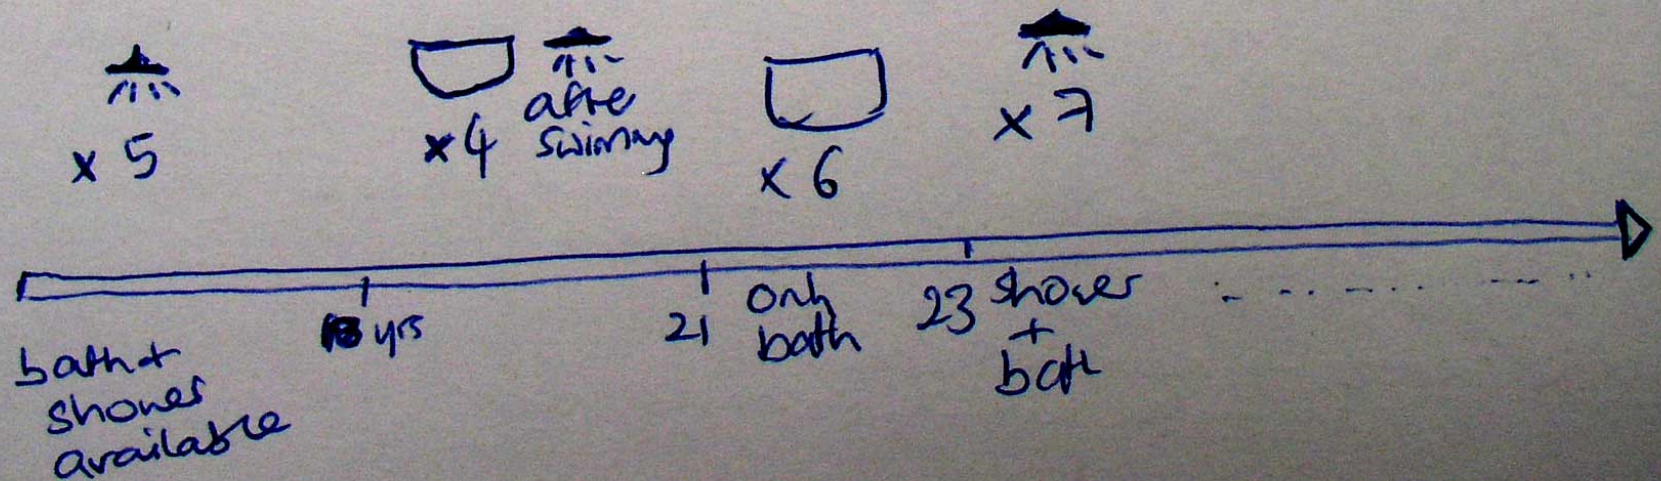 x 5
x4
afte
swimmg
x 6
x 7
bath +
shower
available
18 yrs
21
only
bath
23
shower
+
bath